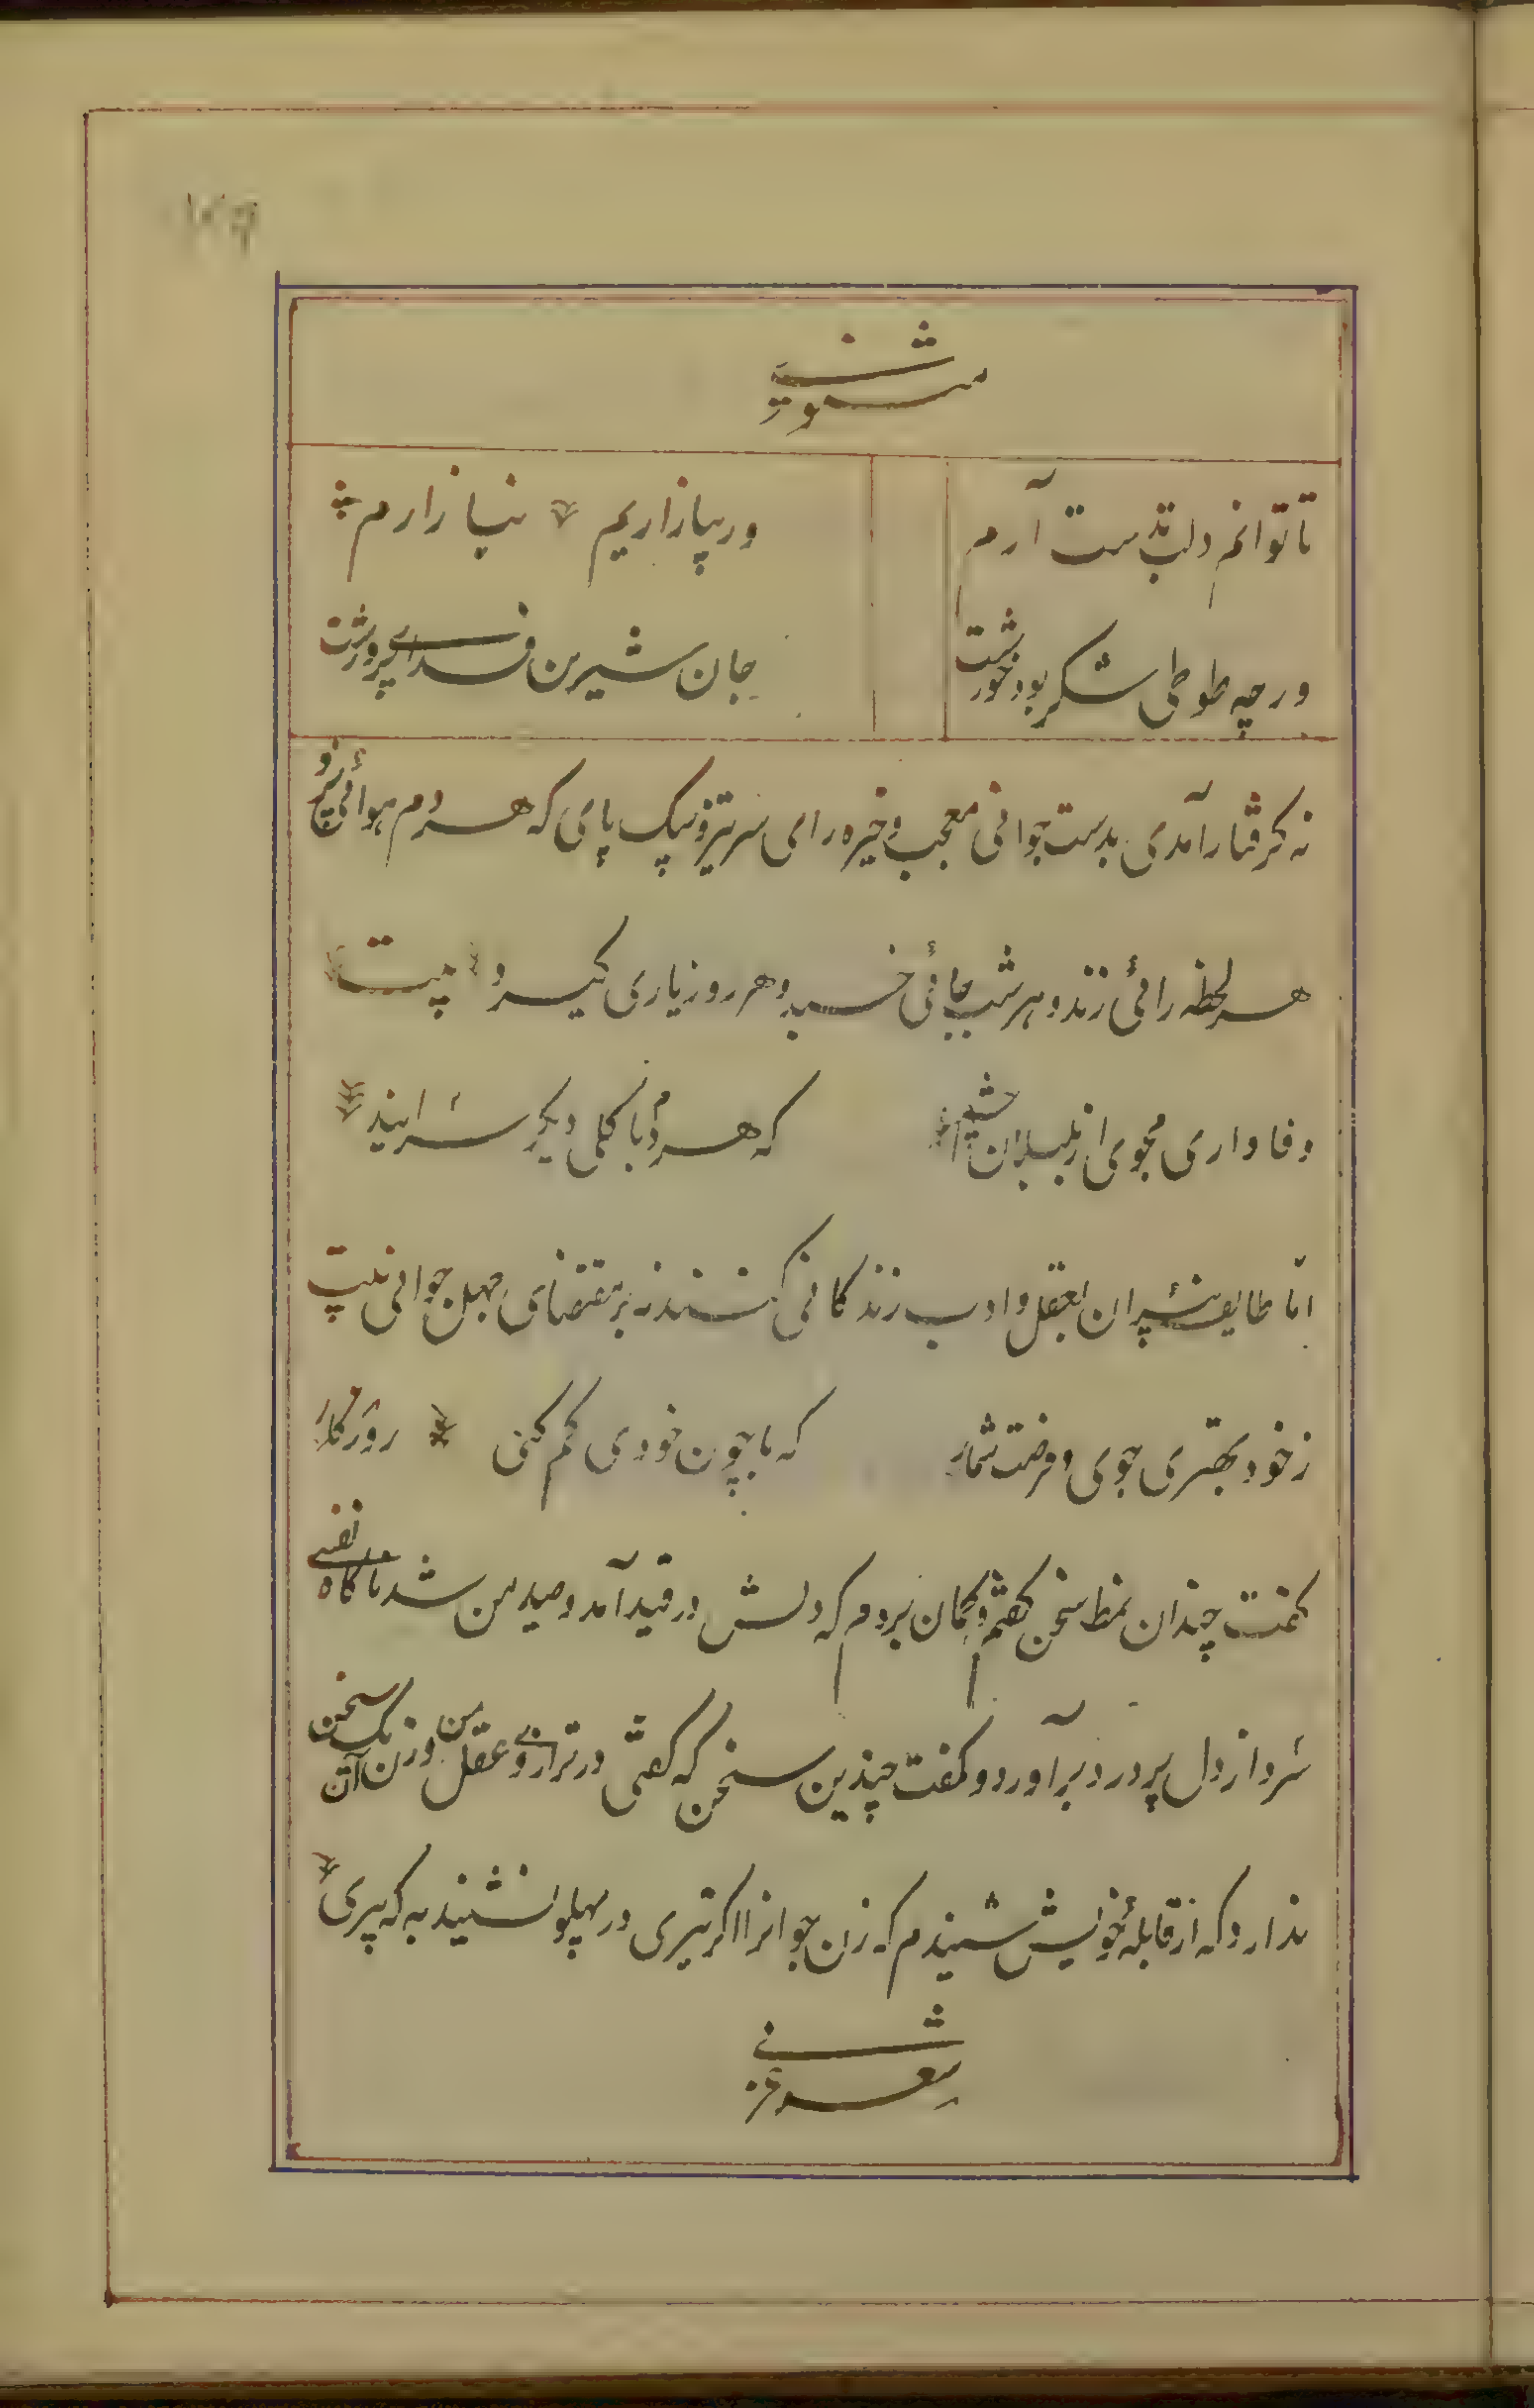 مثنوی
تا توانم دلت بدست آرم ور بیازاریم نیازارم
ور چه طوطی شکر بود خورشت جان شیرین فدای پرورشت
نه کرفتار آمدی بدست جوانی معجب و خیره رای سر تیز و سبک پای که هر دم هوائی پزد و
هر لحظه رائی زند و هر شب جائی خسبد و هر روز یاری کیرد بیت
وفا داری مجوی از بلبلان چشم که هر دم با کلی دیکر سرایند
امّا طایفه پیران بعقل و ادب زندکانی کنند نه بر مقتضای جهل جوانی بیت
ز خود بهتری جوی و فرصت شمار که با چون خودی کم کنی روزکار
کفت چندان نمط سخن کفتم و کمان بردم که دلش در قید آمد و صید من شد ناکاه نفسی
سرد از دل پر درد برآورد و کفت چندین سخن که کفتی در ترازوی عقل من وزن یک سخن آن
ندارد که از قابلهٔ خویش شنیدم که زن جوانرا اکر تیری در پهلو نشیند به که پیری
شعر عربی